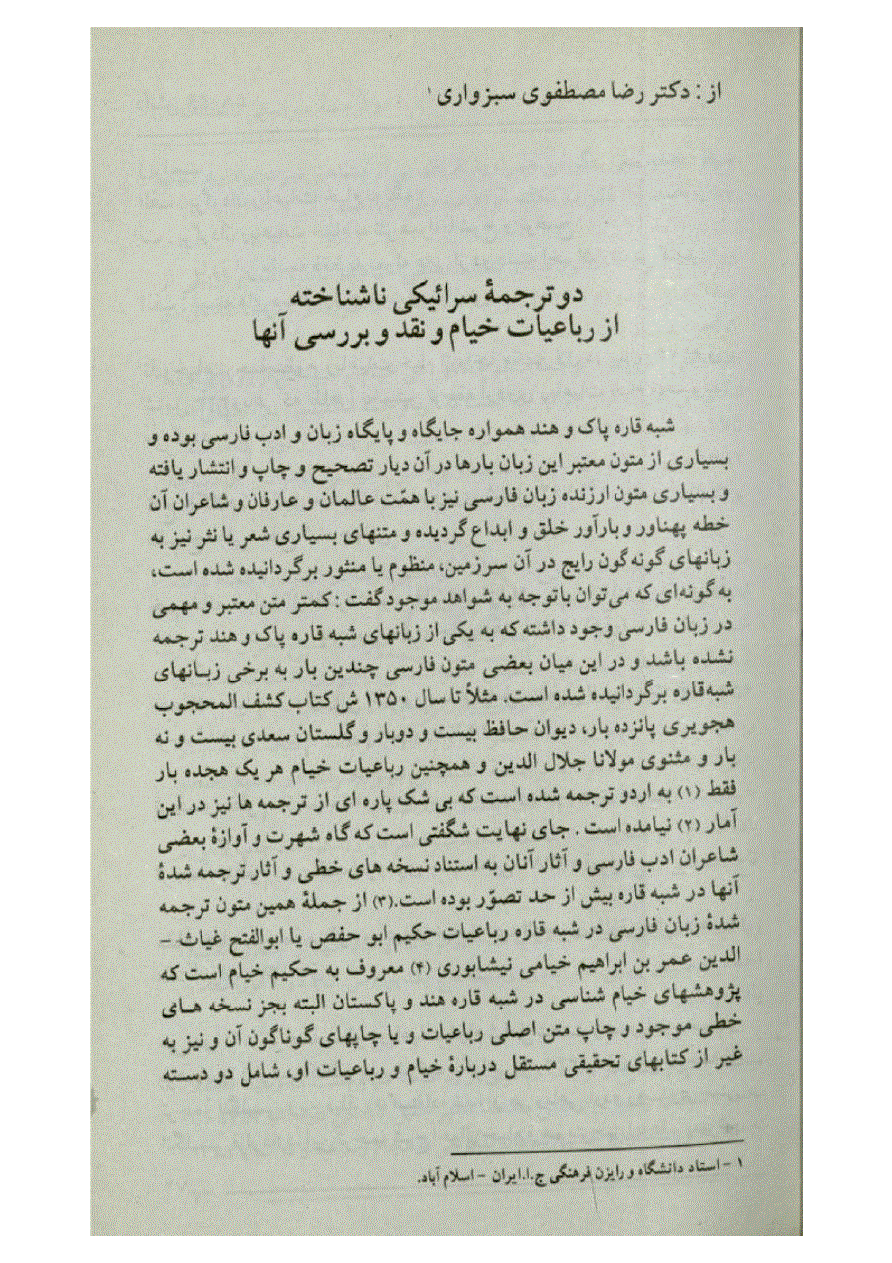 از : دکتر رضا مصطفوی سبزواری ۱
دو ترجمهٔ سرائیکی ناشناخته
از رباعیات خیام و نقد و بررسی آنها
شبه قاره پاک و هند همواره جایگاه و پایگاه زبان و ادب فارسی بوده و
بسیاری از متون معتبر این زبان بارها در آن دیار تصحیح و چاپ و انتشار یافته
و بسیاری متون ارزنده زبان فارسی نیز با همّت عالمان و عارفان و شاعران آن
خطه پهناور و بارآور خلق و ابداع گردیده و متنهای بسیاری شعر یا نثر نیز به
زبانهای گونه گون رایج در آن سرزمین، منظوم یا منثور برگردانیده شده است،
به گونه‌ای که می‌توان باتوجه به شواهد موجود گفت : کمتر متن معتبر و مهمی
در زبان فارسی وجود داشته که به یکی از زبانهای شبه قاره پاک و هند ترجمه
نشده باشد و در این میان بعضی متون فارسی چندین بار به برخی زبانهای
شبه‌قاره برگردانیده شده است. مثلاً تا سال ۱۳۵۰ ش کتاب کشف المحجوب
هجویری پانزده بار، دیوان حافظ بیست و دوبار و گلستان سعدی بیست و نه
بار و مثنوی مولانا جلال الدین و همچنین رباعیات خیام هر یک هجده بار
فقط (۱) به اردو ترجمه شده است که بی شک پاره ای از ترجمه ها نیز در این
آمار (۲) نیامده است . جای نهایت شگفتی است که گاه شهرت و آوازهٔ بعضی
شاعران ادب فارسی و آثار آنان به استناد نسخه های خطی و آثار ترجمه شدهٔ
آنها در شبه قاره بیش از حد تصوّر بوده است.(۳) از جملهٔ همین متون ترجمه
شدهٔ زبان فارسی در شبه قاره رباعیات حکیم ابو حفص یا ابوالفتح غیاث -
الدین عمر بن ابراهیم خیامی نیشابوری (۴) معروف به حکیم خیام است که
پژوهشهای خیام شناسی در شبه قاره هند و پاکستان البته بجز نسخه های
خطی موجود و چاپ متن اصلی رباعیات و یا چاپهای گوناگون آن و نیز به
غیر از کتابهای تحقیقی مستقل دربارهٔ خیام و رباعیات او، شامل دو دسته
۱ - استاد دانشگاه و رایزن فرهنگی ج.ا.ایران - اسلام آباد.